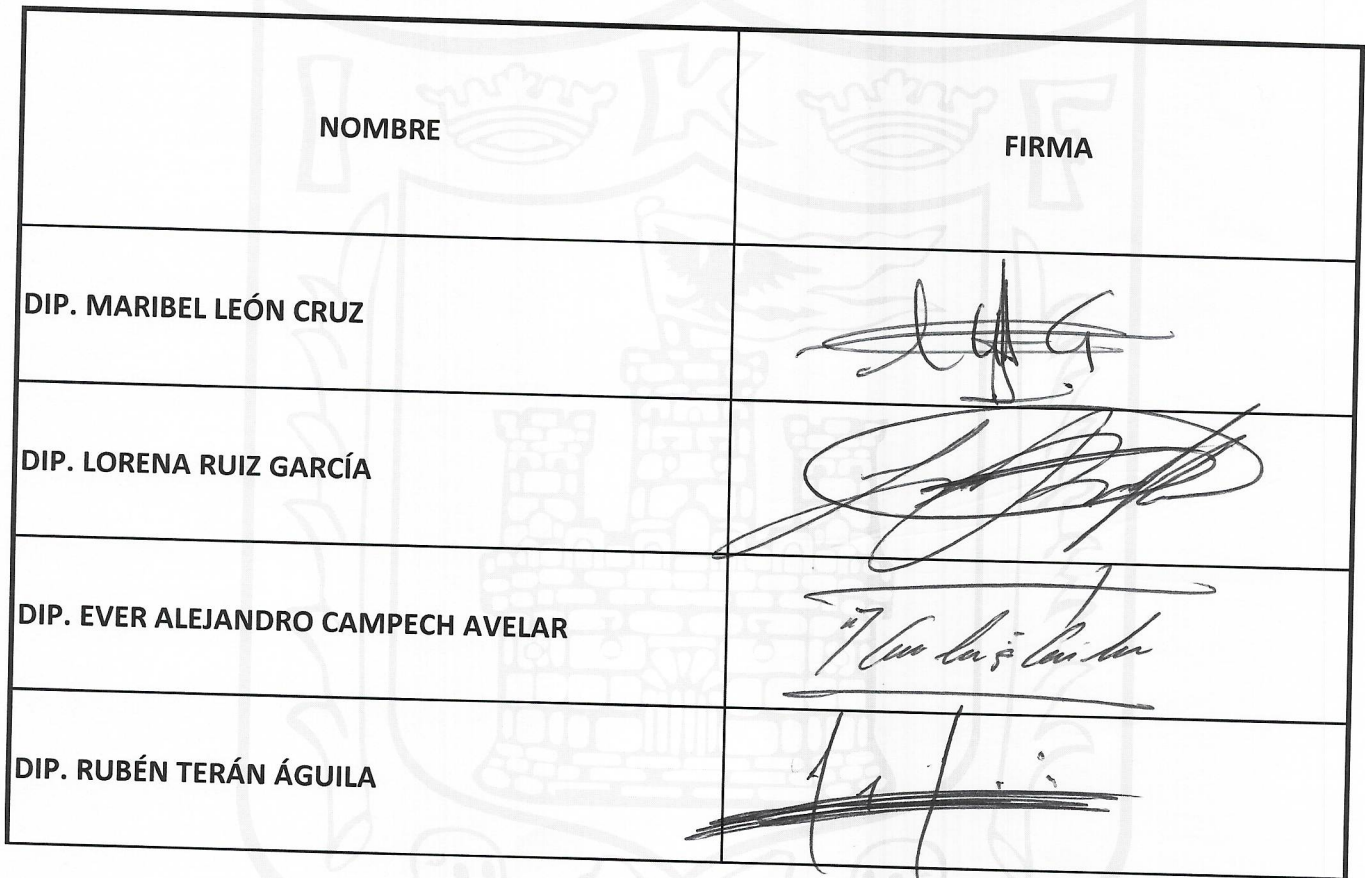 I K F
NOMBRE
FIRMA
DIP. MARIBEL LEÓN CRUZ
DIP. LORENA RUIZ GARCÍA
DIP. EVER ALEJANDRO CAMPECH AVELAR
DIP. RUBÉN TERÁN ÁGUILA